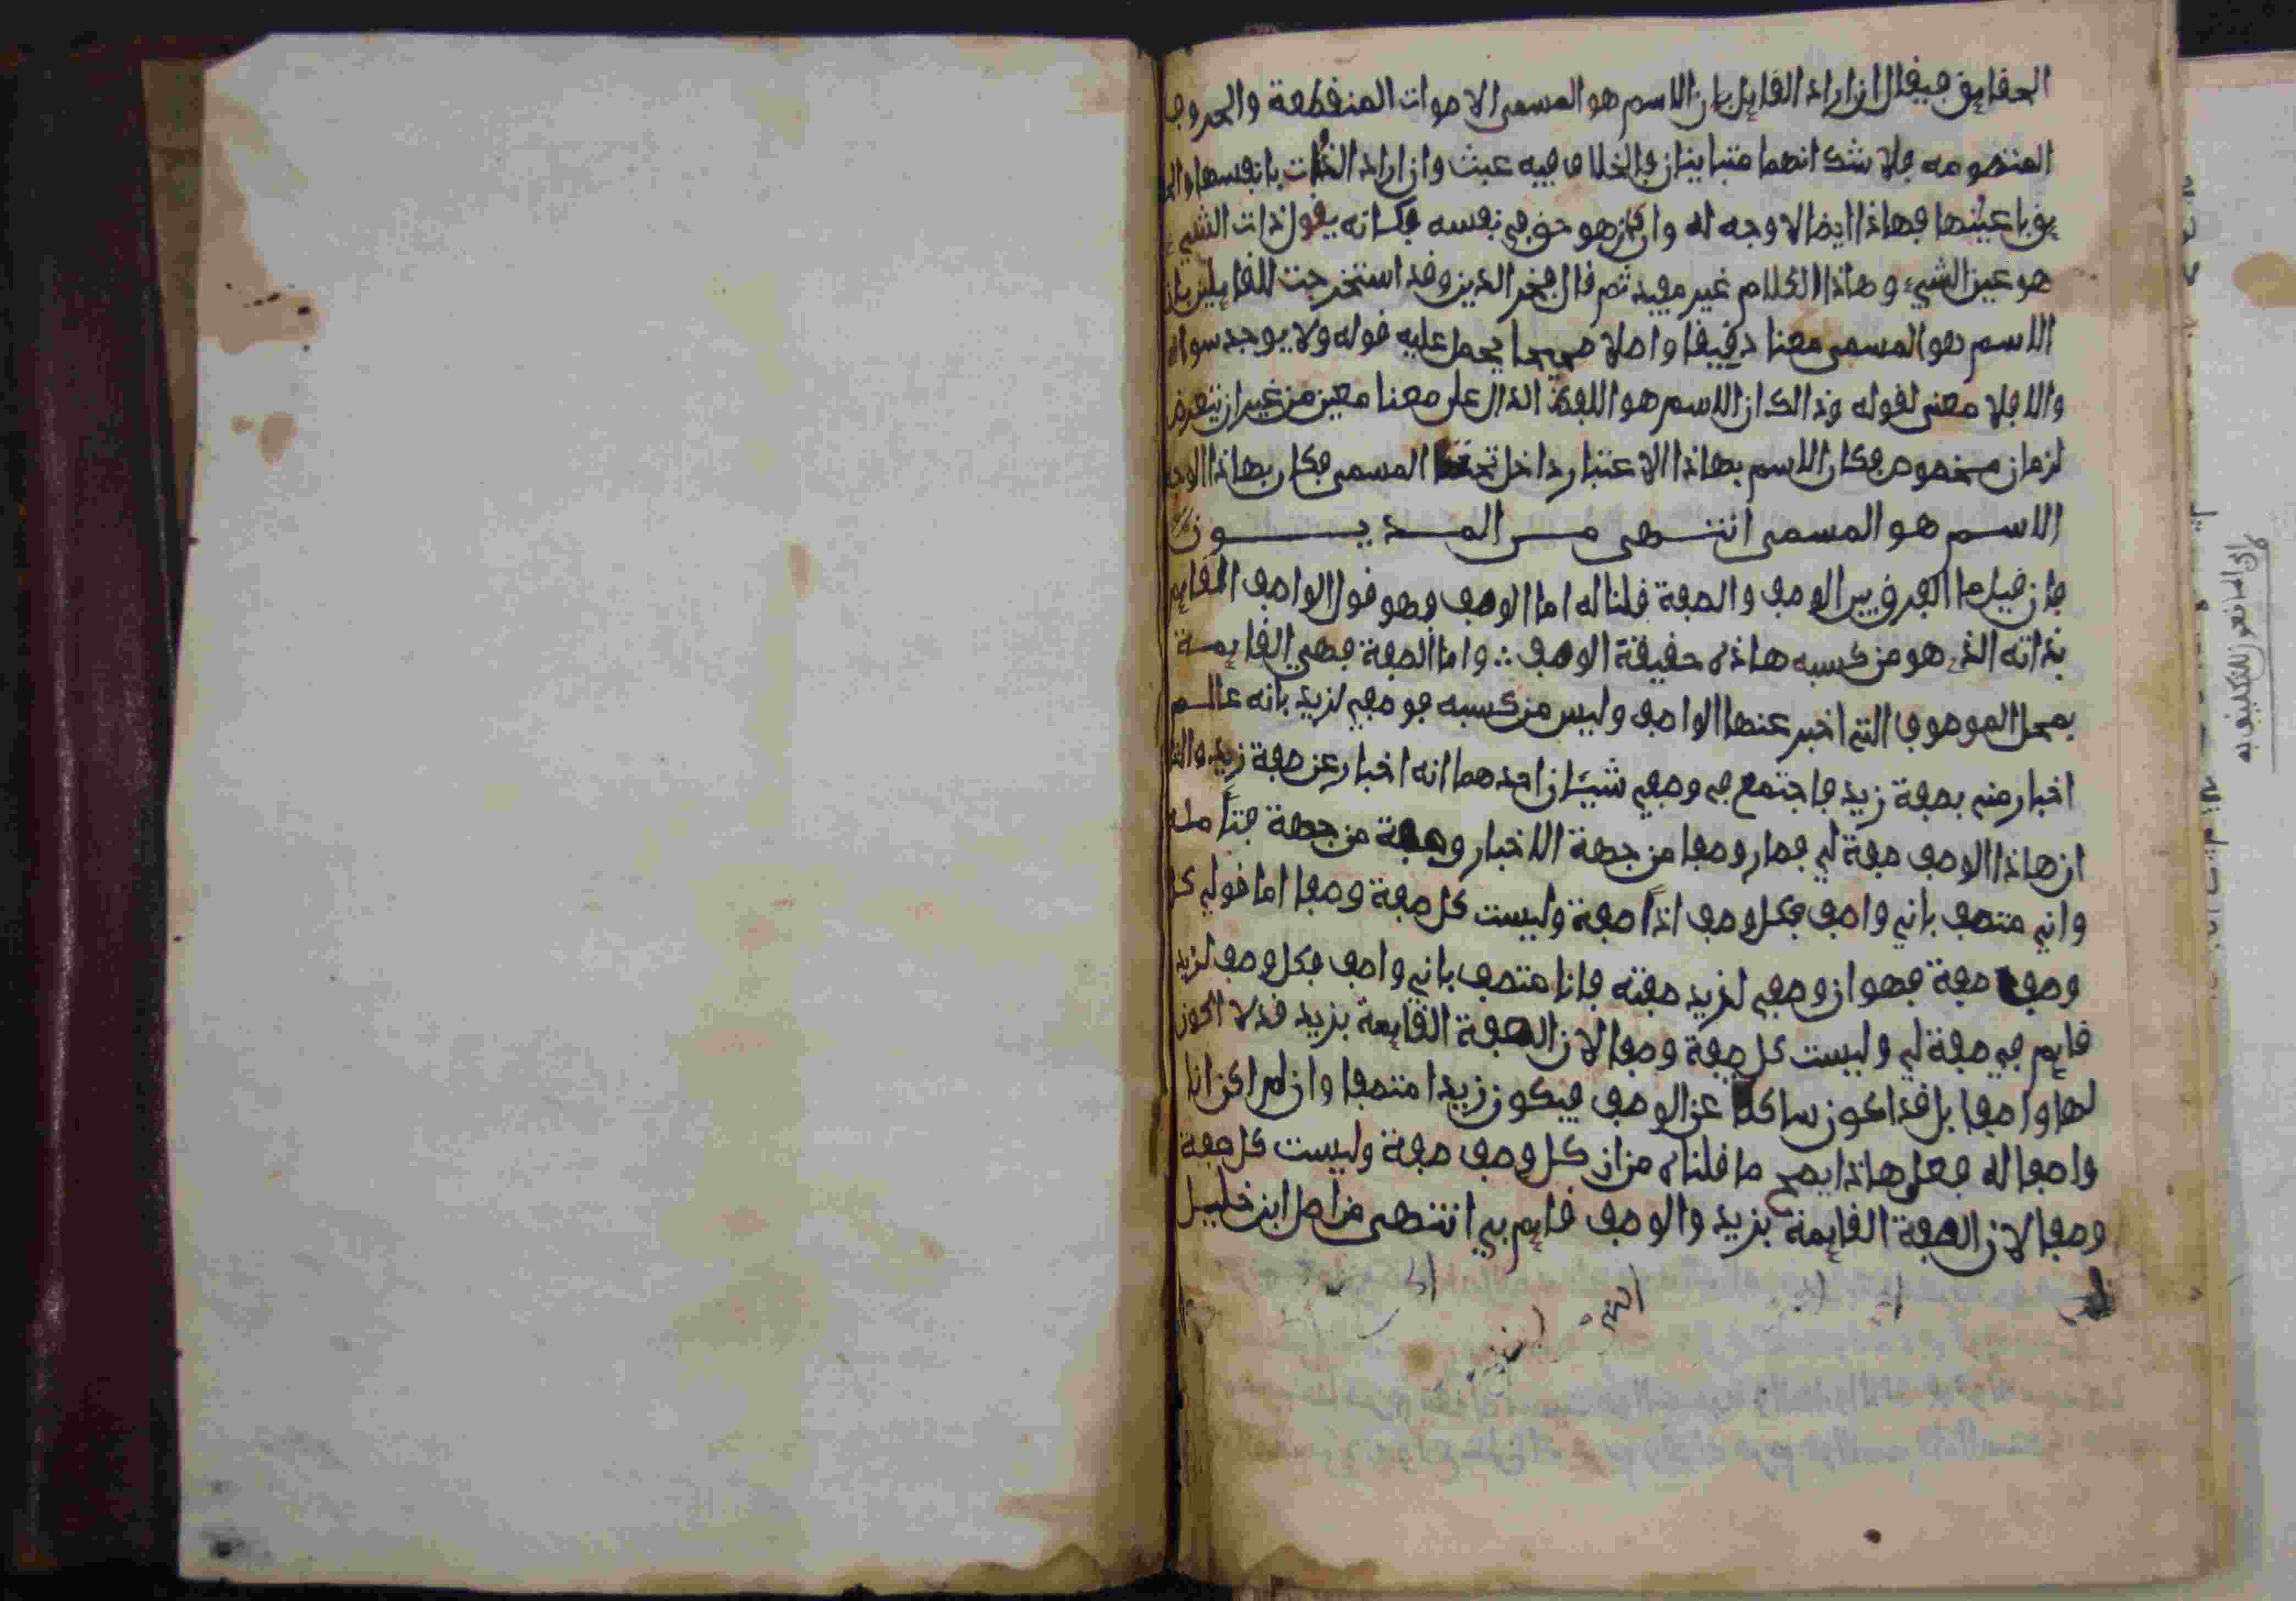 الحقايق فيقال ان اراد القايل بان الاسم هو المسمى الاصوات المنقطعة والحروف
المنضومه فلا شك انهما متباينان فالخلاف فيه عبث وان اراد الذات بانفسها والحقا
يق باعينها فهاذا ايضا لا وجه له وان كان هو حق في نفسه فكانه يقول ذات الشيء
هو عين الشيء وهاذا الكلام غير مفيد ثم قال فخر الدين وقد استخرجت للقايلين بان
الاسم هو المسمى معنا دقيقا واصلا صحيحا يحمل عليه قوله ولا يوجد سواه
والا فلا معنى لقوله وذالك ان الاسم هو اللفظ الدال على معنا معين من غير ان يتعرض
لزمان مخصوص فكان الاسم بهاذا الاعتبار داخل تحت المسمى فكان بهاذا الوجه
الاسم هو المسمى انتهى من المديون
فان قيل ما الفرق بين الوصف والصفة قلنا له اما الوصف فهو قول الواصف القايم
بذاته الذي هو من كسبه هاذه حقيقة الوصف ∴ واما الصفة فهي القايمة
بمحل الموصوف التي اخبر عنها الواصف وليس من كسبه فوصفي لزيد بانه عالم
اخبار مني بصفة زيد فاجتمع في وصفي شيئان احدهما انه اخبار عن صفة زيد والثا
ان هاذا الوصف صفة لي فصار وصفا من جهة الاخبار وصفة من جهة فتامله
واني متصف باني واصف فكل وصف اذا صفة وليست كل صفة وصفا اما قولي كل
وصف صفة فهو ان وصفي لزيد صفته فانا متصف باني واصف فكل وصف لزيد
قايم في صفة لي وليست كل صفة وصفا لان الصفة القايمة بزيد قد لا اكون
لها واصفا بل قد اكون ساكتا عن الوصف فيكون زيدا متصفا وان لم اكن انا
واصفا له فعلى هاذا يصح ما قلناه من ان كل وصف صفة وليست كل صفة
وصفا لان الصفة القايمة بزيد والوصف قايم بي انتهى من اصل ابن خليل